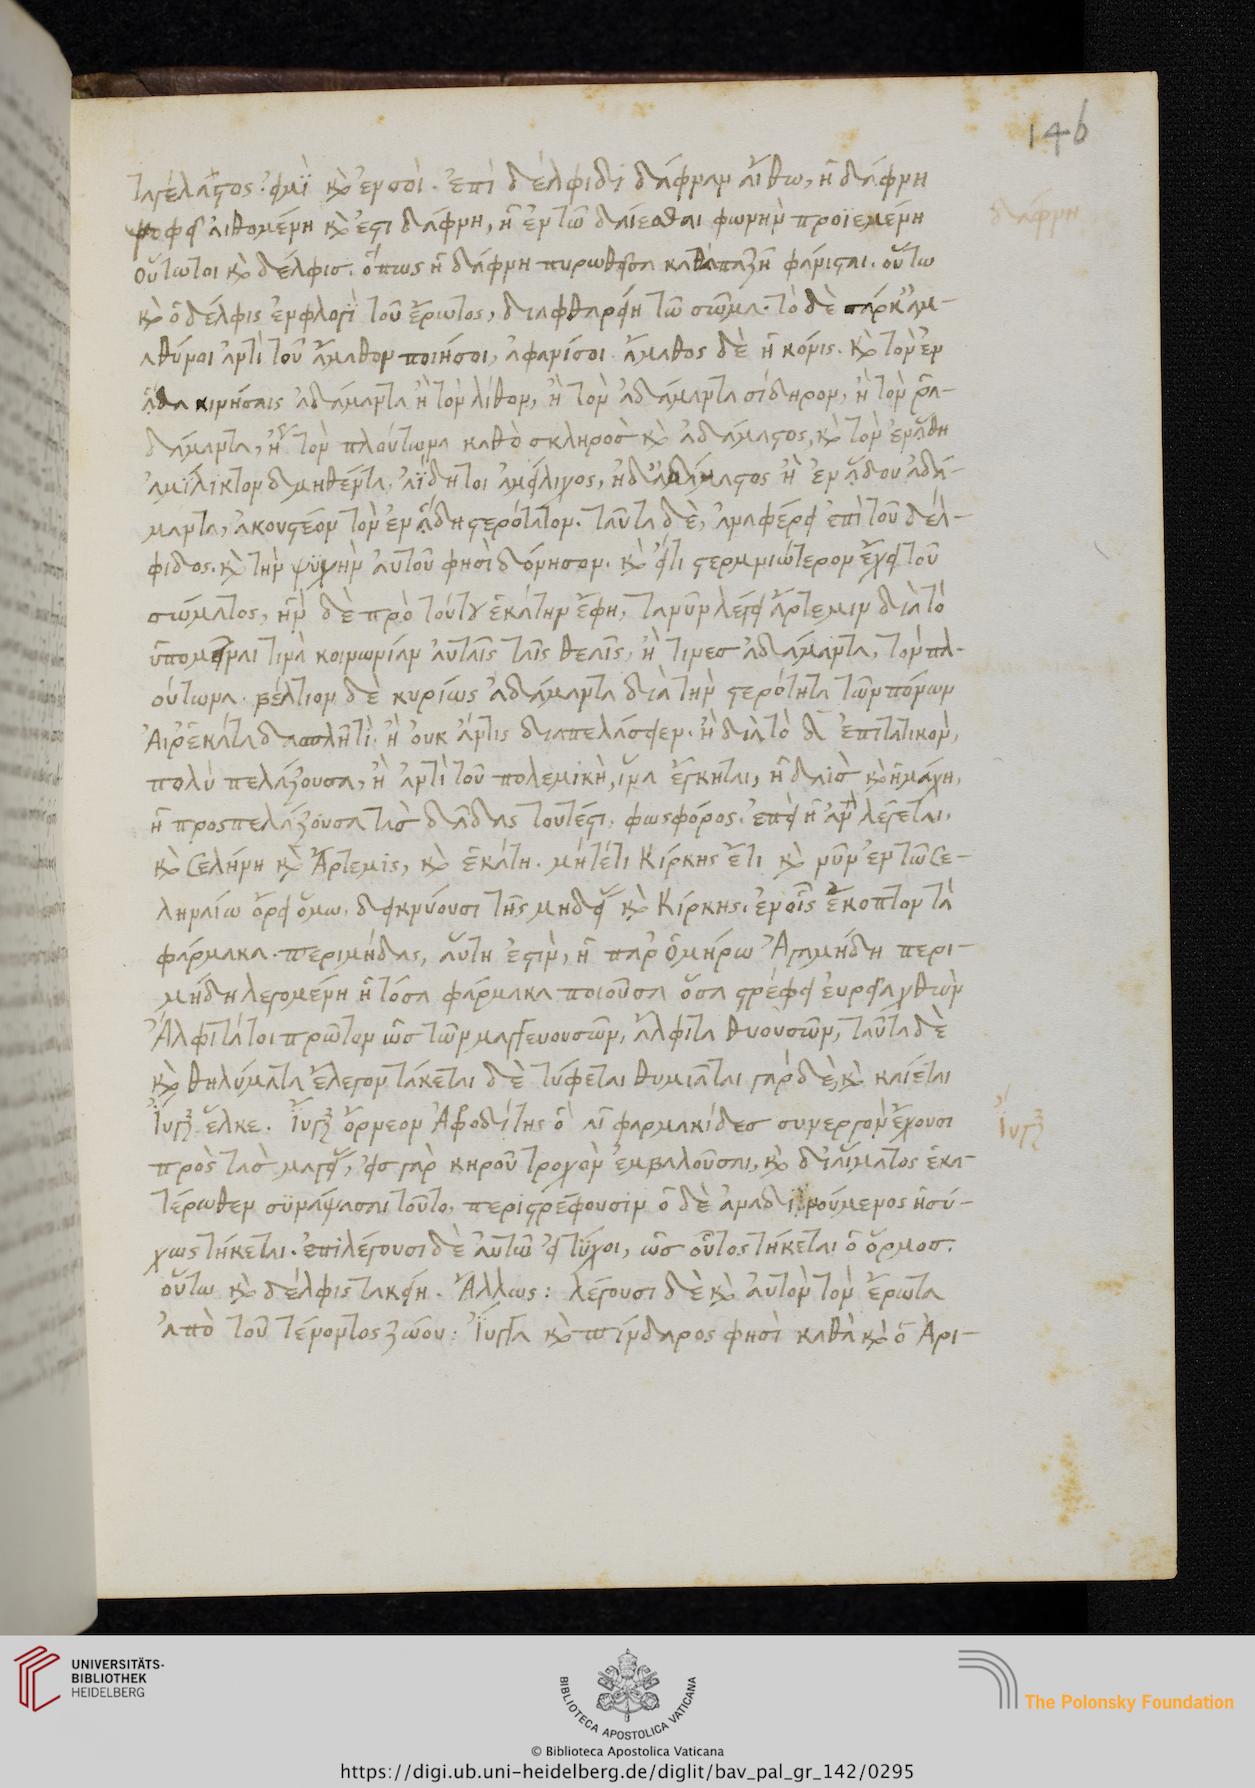 146
ταγέλαστος. εἰμὶ καὶ ἐν σοί. ἐπὶ δέλφιδι δάφναν αἴθω, ἡ δάφνη
ψοφεῖ αἰθομένη καὶ ἔστι δάφνη, ἡ ἐν τῶ δαίεσθαι φωνὴν προϊεμένη
δάφνη
οὕτω τοι καὶ δέλφισ. ὅπως ἡ δάφνη πυρωθεῖσα φανίσται. οὕτω
καὶ ὁ δέλφις ἐν φλογὶ τοῦ ἔρωτος, διαφθαρείη τῶ σῶμα. τὸ δὲ σάρκ' ἀμ-
αθύνοι ἀντὶ τοῦ ἄμαθον ποιήσοι, ἀφανίσοι. ἄμαθος δὲ ἡ κόνις. καὶ τὸν ἐν
ἅδα κινήσαις ἀδάμαντα ἢ τὸν λίθον, ἢ τὸν ἀδάμαντα σίδηρον, ἢ τὸν ῥα-
δάμαντα, ἢ τὸν πλούτωνα καθὸ σκληρὸσ καὶ ἀδάμαστος, καὶ τὸν ἐν ἅδη
ἀμίλικτον δμηθέντα, ἀΐδητοι ἀμείλιχος, ἠδ' ἀδάμαστος ἢ ἐν ἅδου ἀδά-
μαντα, ἀκουστέον τὸν ἐν ἅδη στερότατον. ταῦτα δὲ, ἀναφέρει ἐπὶ τοῦ δέλ-
φιδος. καὶ τὴν ψυχὴν αὐτοῦ φησὶ δόνησον. καὶ εἴ τι στερμνιώτερον ἔχει τοῦ
σώματος, ἣν δὲ πρὸ τούτου ἑκάτην ἔφη, τανῦν λέγει ἄρτεμιν διὰ τὸ
τινὰ κοινωνίαν αὐταῖς ταῖς θεαῖς, ἢ τινεσ ἀδάμαντα, τὸν πλ-
ούτωνα. βέλτιον δὲ κυρίως ἀδάμαντα διὰ τὴν στερότητα τῶν πόνων
ἢ οὐκ ἄντις διαπελάσειεν. ἢ διὰ τὸ δα ἐπιτατικὸν,
πολὺ πελάζουσα, ἢ ἀντὶ τοῦ πολεμικὴ, ἵνα ἔγκηται, ἡ δαῒσ καὶ ἡ μάχη,
ἡ προσπελάζουσα τὰσ δᾶδας τουτέστι, φωσφόρος. ἐπεὶ ἡ αὐτὴ λέγεται,
καὶ Σελήνη καὶ Ἄρτεμις, καὶ ἑκάτη. μήτέτι Κίρκης ἔτι καὶ νῦν ἐν τῶ Σε-
ληναίω ὄρει ὅλμω. δεικνύουσι τῆς μηδεί καὶ Κίρκης. ἐν οἷς ἔκοπτον τὰ
φάρμακα. περιμήδας, αὕτη ἐστὶν, ἡ παρ' ὁμήρω Ἀγαμήδη περι-
μήδη λεγομένη ἡ τόσα φάρμακα ποιοῦσα ὅσα στρέφει εὐρεῖα χθὼν
Ἄλφιτά τοι πρῶτον ὡσ τῶν μαγγευουσῶν, ἄλφιτα θυουσῶν, ταῦτα δὲ
καὶ θηλύματα ἔλεγον τάκεται δὲ τύφεται θυμιᾶται γὰρ δὲ, καὶ καίεται
Ἶυγξ ἕλκε. Ἶυγξ ὄρνεον Ἀφροδίτης ὃ αἱ φαρμακίδεσ συνεργὸν ἔχουσι
Ἶυγξ
πρὸς τὰσ μαγεί, εἰσ γὰρ κηροῦ τροχὸν ἐμβαλοῦσαι, καὶ δι' αἵματος ἑκα-
τέρωθεν συνάψασαι τοῦτο, περιστρέφουσιν ὁ δὲ ἀναδινούμενος ἡσύ-
χως τήκεται. ἐπιλέγουσι δὲ αὐτῶ εἰ τύχοι, ὡσ οὗτος τήκεται ὁ ὄρνοσ.
οὕτω καὶ δέλφις τακείη. Ἄλλως: λέγουσι δὲ καὶ αὐτὸν τὸν ἔρωτα
ἀπὸ τοῦ τέμοντος ζώου: Ἴυγγα καὶ πίνδαρος φησὶ καθὰ καὶ ὁ Ἀρι-
UNIVERSITÄTS-
BIBLIOTHEK
HEIDELBERG
BIBLIOTECA APOSTOLICA VATICANA
The Polonsky Foundation
© Biblioteca Apostolica Vaticana
https://digi.ub.uni-heidelberg.de/diglit/bav_pal_gr_142/0295